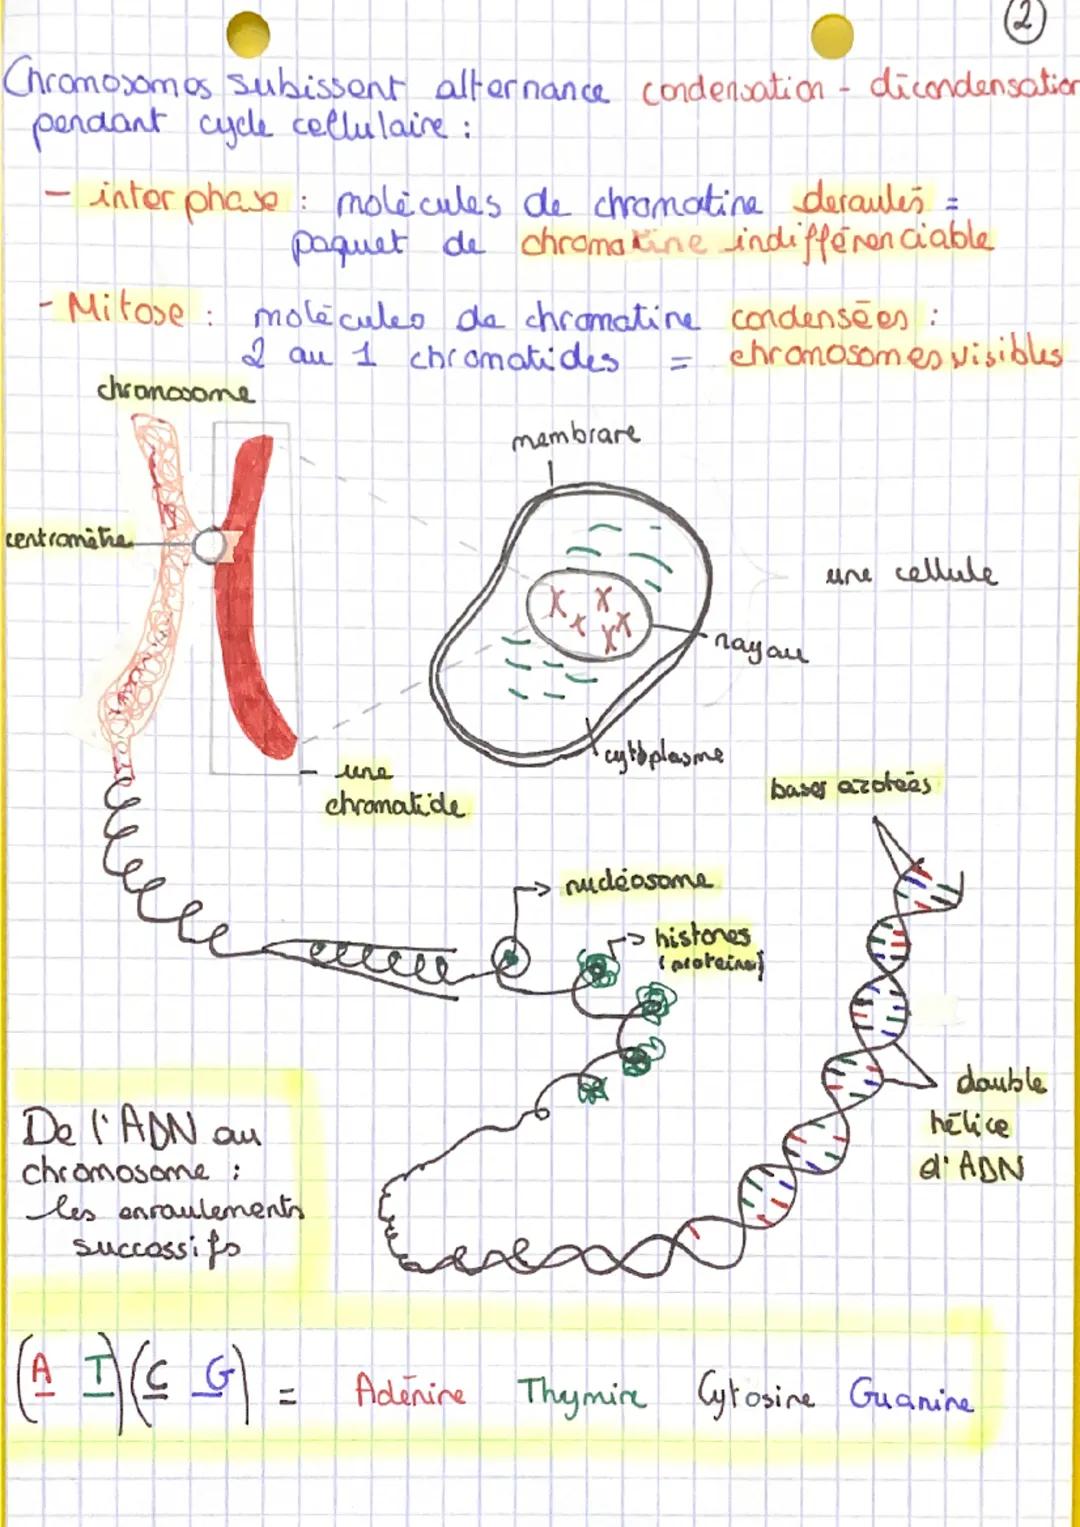 2
Chromosomes subissent alternance condensation - dicondensation
pendant cycle cellulaire :
- interphase : molécules de chromatine deroulés =
paquet de chromatine indifférenciable
- Mitose : molécules de chromatine condensées :
2 ou 1 chromatides = chromosomes visibles
chromosome
membrane
centromètre
une cellule
noyau
cytoplasme
une
chromatide
bases azotées
nucléosome
histones
(proteines)
double
hélice
d'ADN
De l'ADN au
chromosome :
les enroulements
successifs
(A T)(C G) = Adénine Thymine Cytosine Guanine